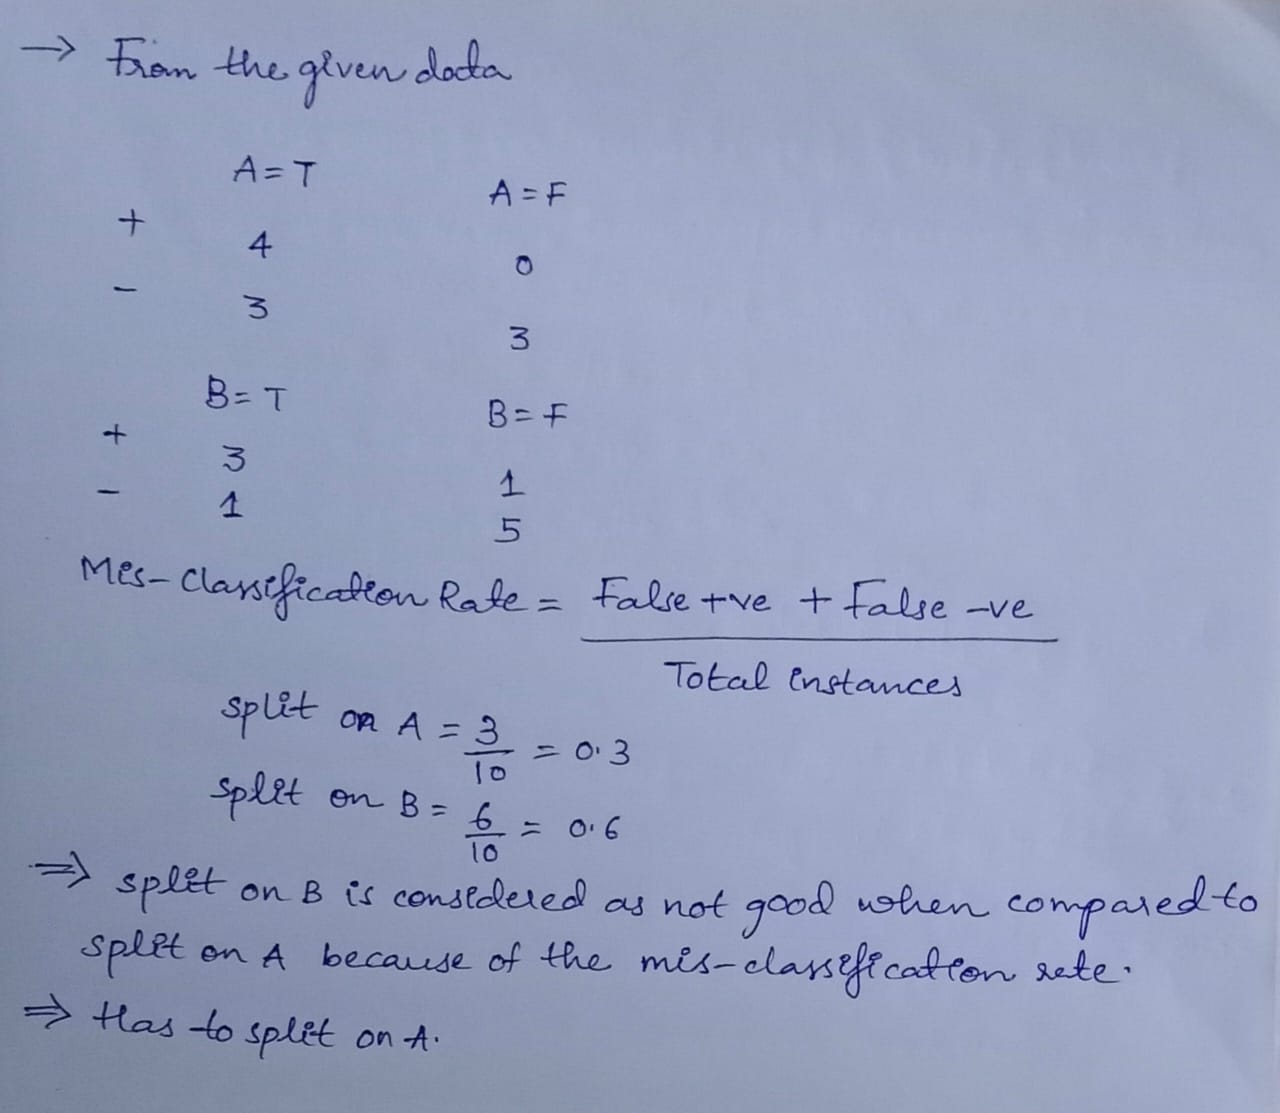 → From the given data
A = T A = F
+ 4 0
- 3 3
B = T B = F
+ 3 1
- 1 5
Mis-classification Rate = False +ve + False -ve
Total instances
split on A = 3/10 = 0.3
split on B = 6/10 = 0.6
⇒ split on B is considered as not good when compared to
split on A because of the mis-classification rate.
⇒ Has to split on A.